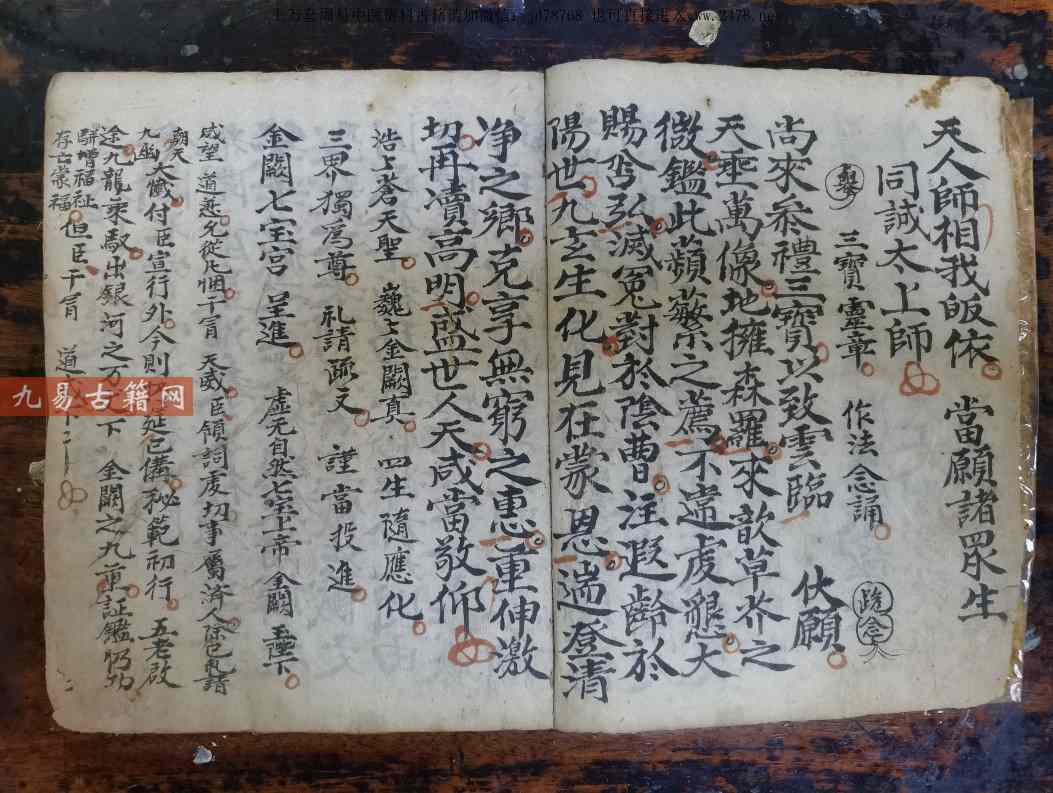 上万套周易中医道科古籍请加微信：jd78768 也可直接进入www.2478.net
天人師相我皈依 當願諸眾生
同誠太上師
三寶靈章 作法念誦 跪念
尚來叅禮三寶以致雲臨 伏願
天垂萬像地擁森羅來歆草芥之
微鑑此蘋蘩之薦不遄虔懇大
賜含弘滅冤對於陰曹注遐齡於
陽世九玄生化見在蒙恩遄登清
净之鄉克享無窮之惠重伸激
切再瀆高明盛世人天咸當敬仰
浩上蒼天聖 巍七金闕真 四生隨應化
三界獨為尊 礼請疏文 謹當投進
金闕七宝宮 呈進 虛无自然七宝上帝金闕 陛下
威望 道慈允從凡悃干冐 天威臣領詞虔切事屬済人除已乹請
朝天
九幽 大懺付臣宣行外今則 延已備秘範初行 五老啟
途九龍乘馭出銀河之万 下 金闕之九重証鑑 功
駢增福祉
存亡蒙福 但臣干冐 道
九易古籍网